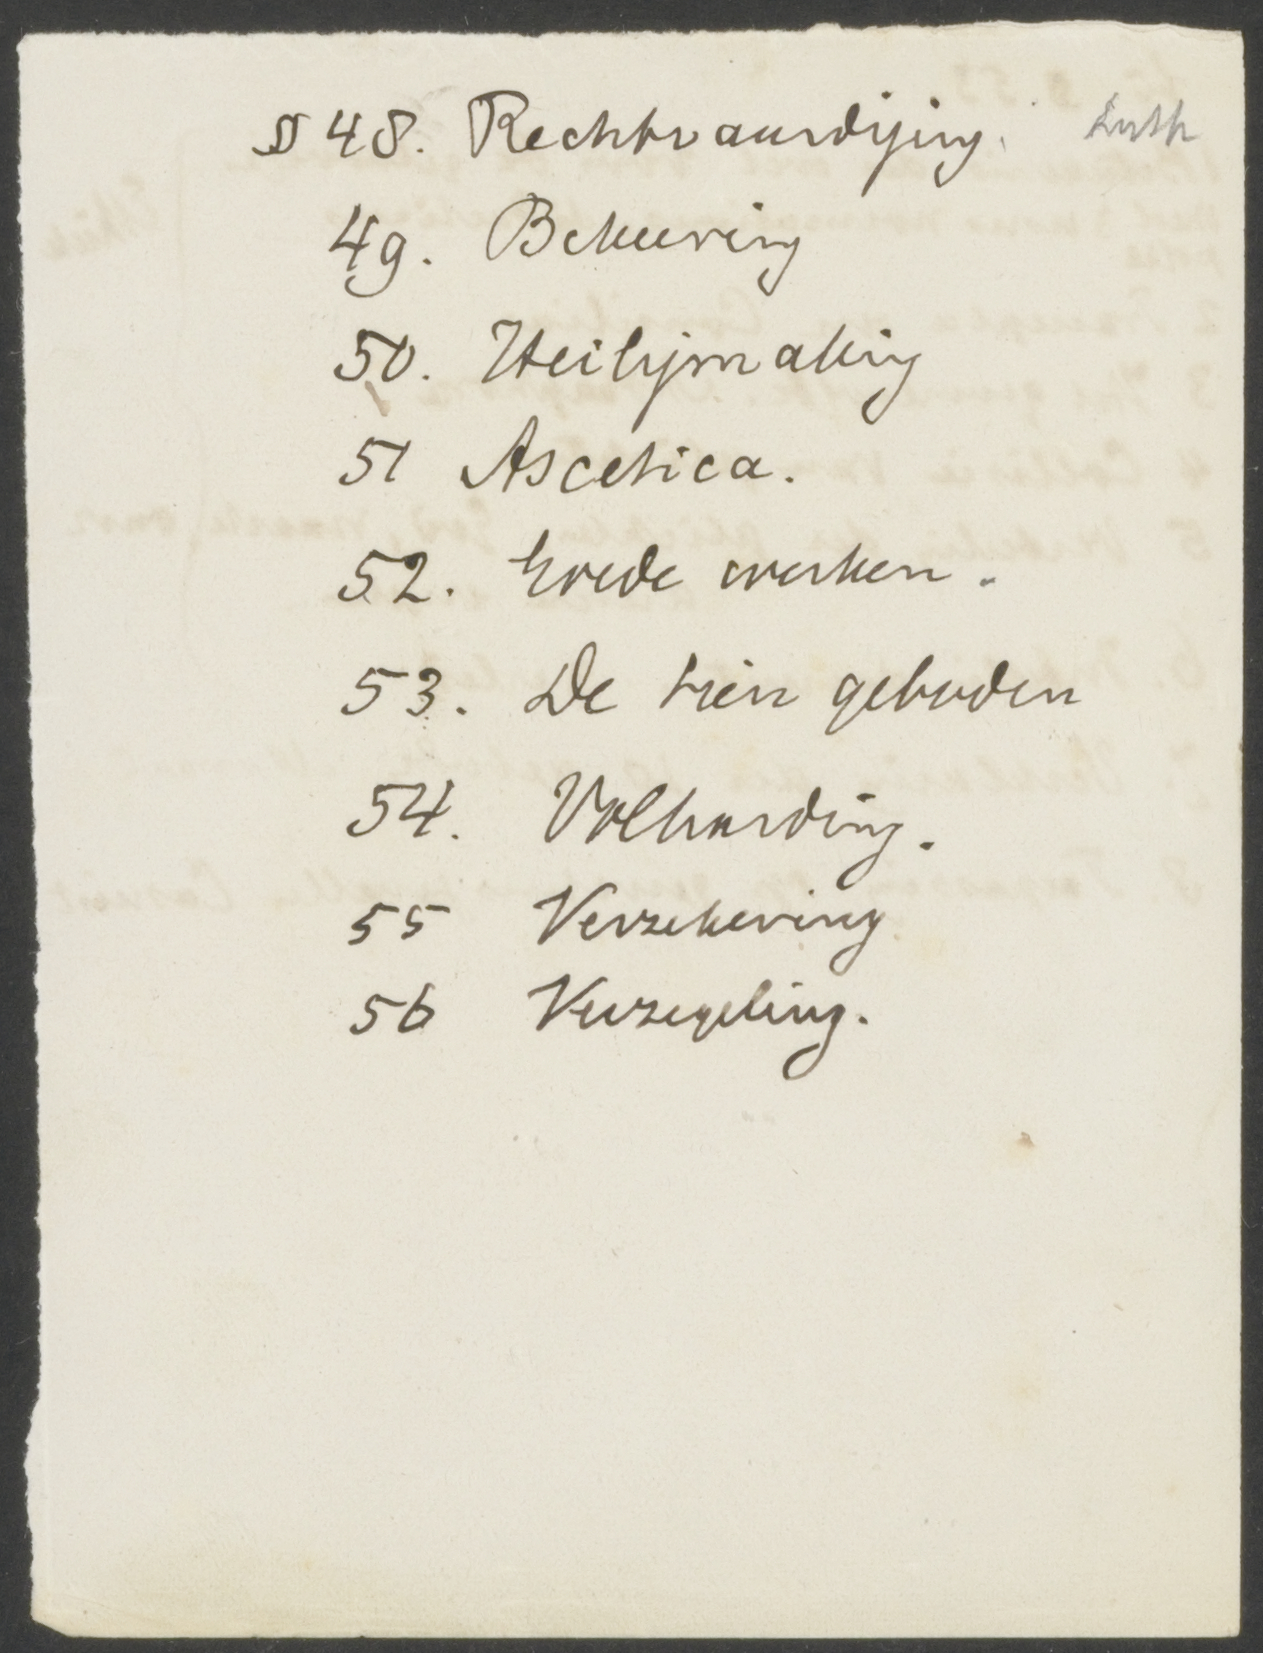 § 48. Rechtvaardiging. Luth
49. Bekeering
50. Heiligmaking
51 Ascetica.
52. Goede werken.
53. De tien geboden
54. Volharding.
55 Verzekering
56 Verzegeling.